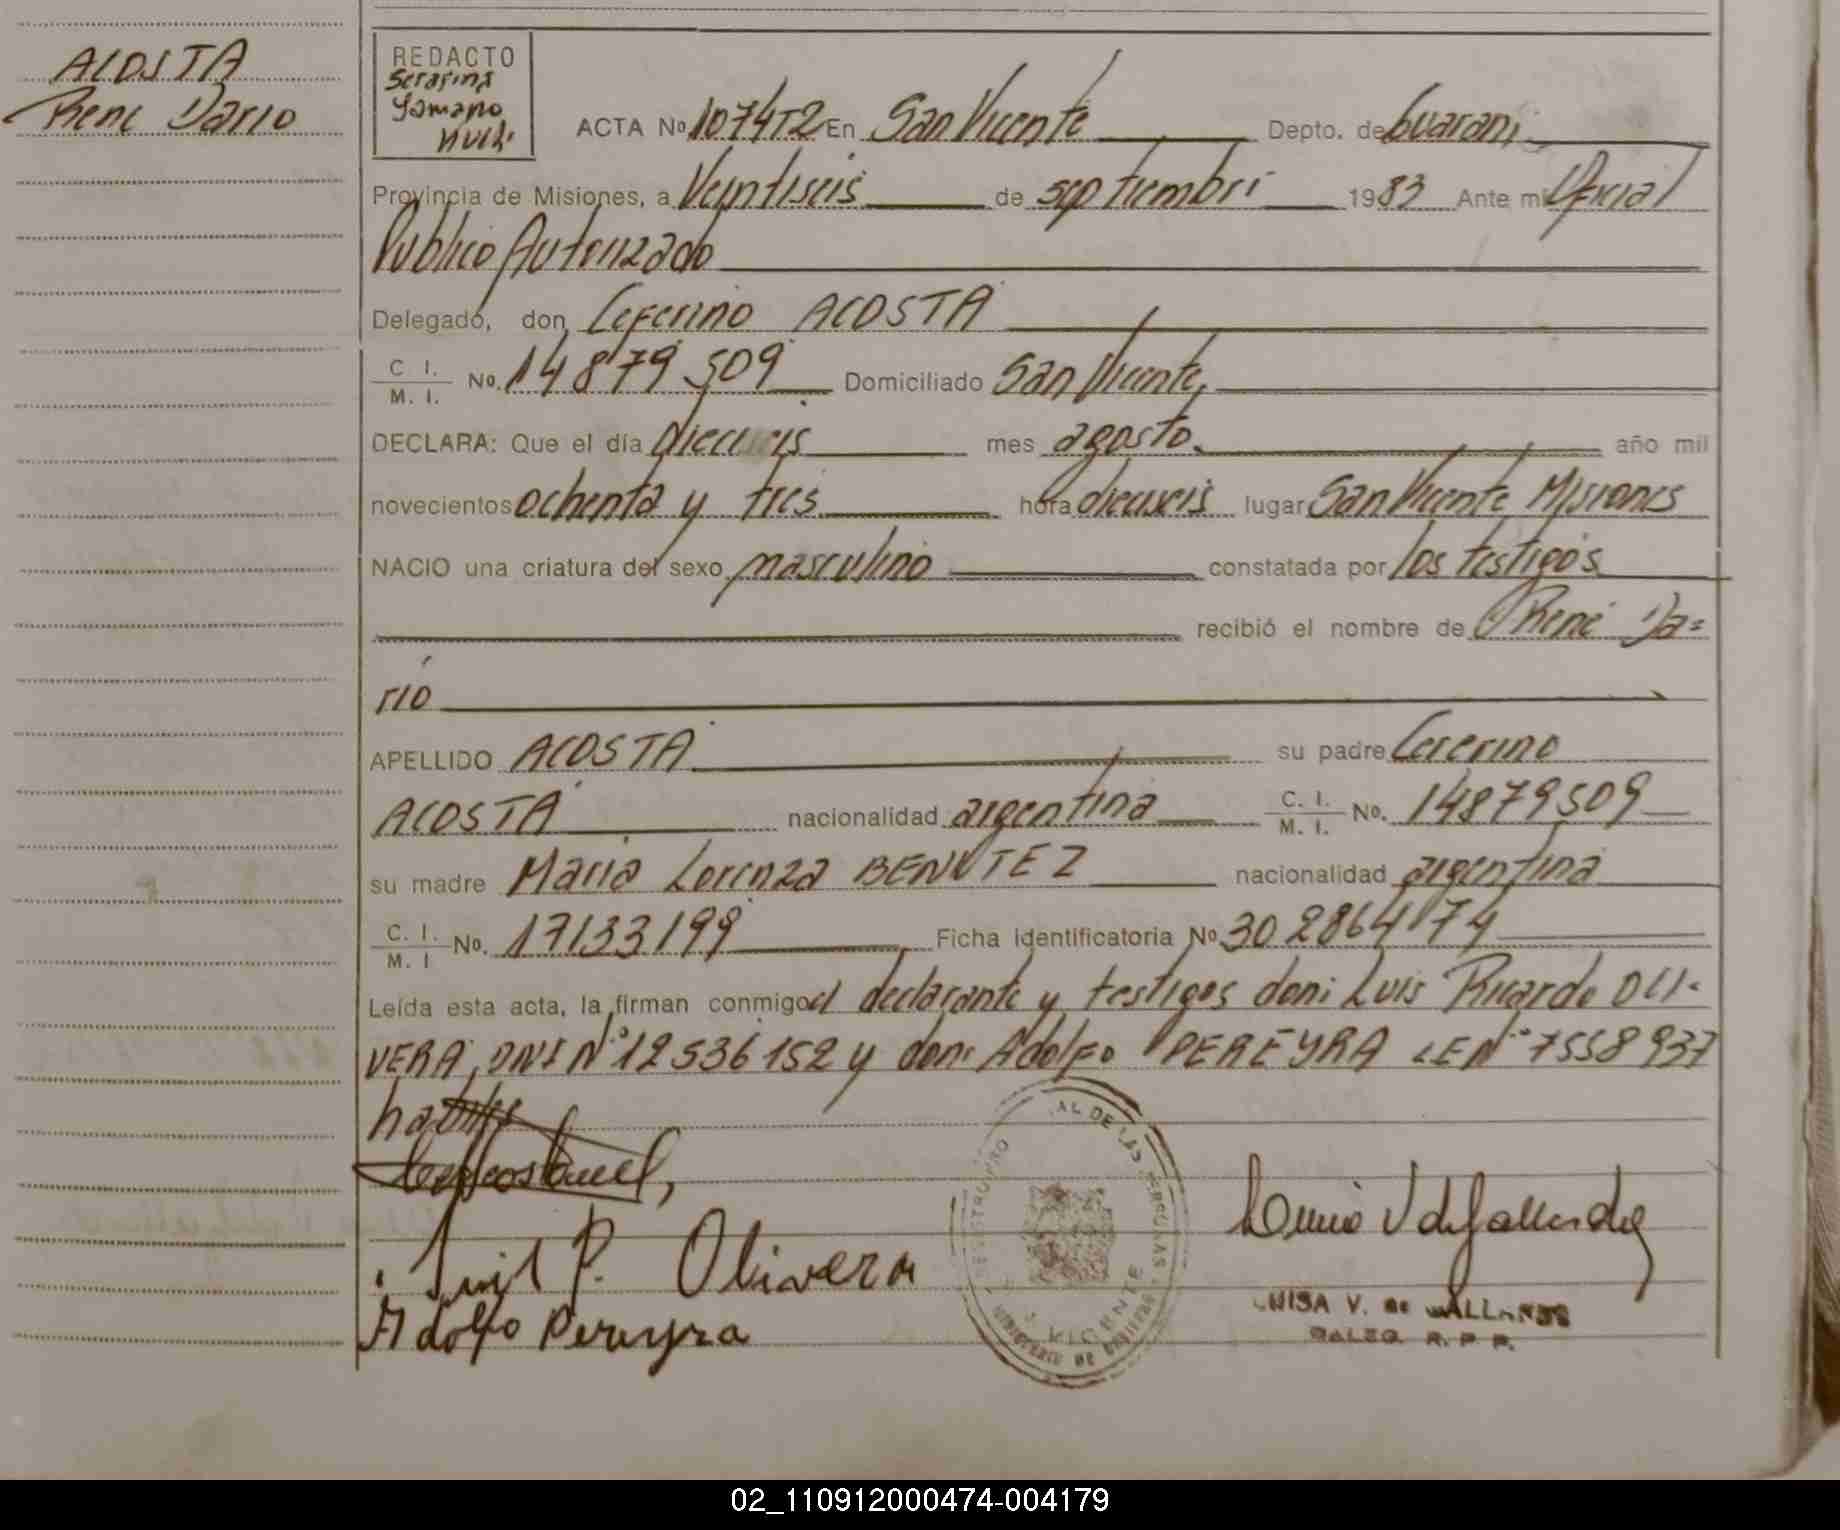 ACOSTA
René Dario
REDACTO
Serafina
ACTA No 1074T2 En San Vicente Depto. de Guarani
Provincia de Misiones, a Veintiseis de septiembre 1983 Ante mi Oficial
Publico Autorizado
Delegado, don Ceferino ACOSTA
C. I.
M. I. No. 14879509 Domiciliado San Vicente,
DECLARA: Que el día dieciseis mes agosto. año mil
novecientos ochenta y tres hora dieciseis lugar San Vicente Misiones
NACIO una criatura del sexo masculino constatada por los testigos
recibió el nombre de René Da=
río
APELLIDO ACOSTA su padre Ceferino
ACOSTA nacionalidad argentina C. I.
M. I. No. 14879509
su madre Maria Lorenza BENITEZ nacionalidad argentina
C. I.
M. I No. 17133199 Ficha identificatoria No 30286474
Leída esta acta, la firman conmigo el declarante y testigos don: Luis Ricardo OLI-
VERA, DNI Nº 12536152 y don: Adolfo PEREYRA LE Nº 7558937
Luis R. Olivera
Adolfo Pereyra
AL DE LAS PERSONAS
VICENTE
LUISA V. de GALLARDO
R. P. P.
02_110912000474-004179